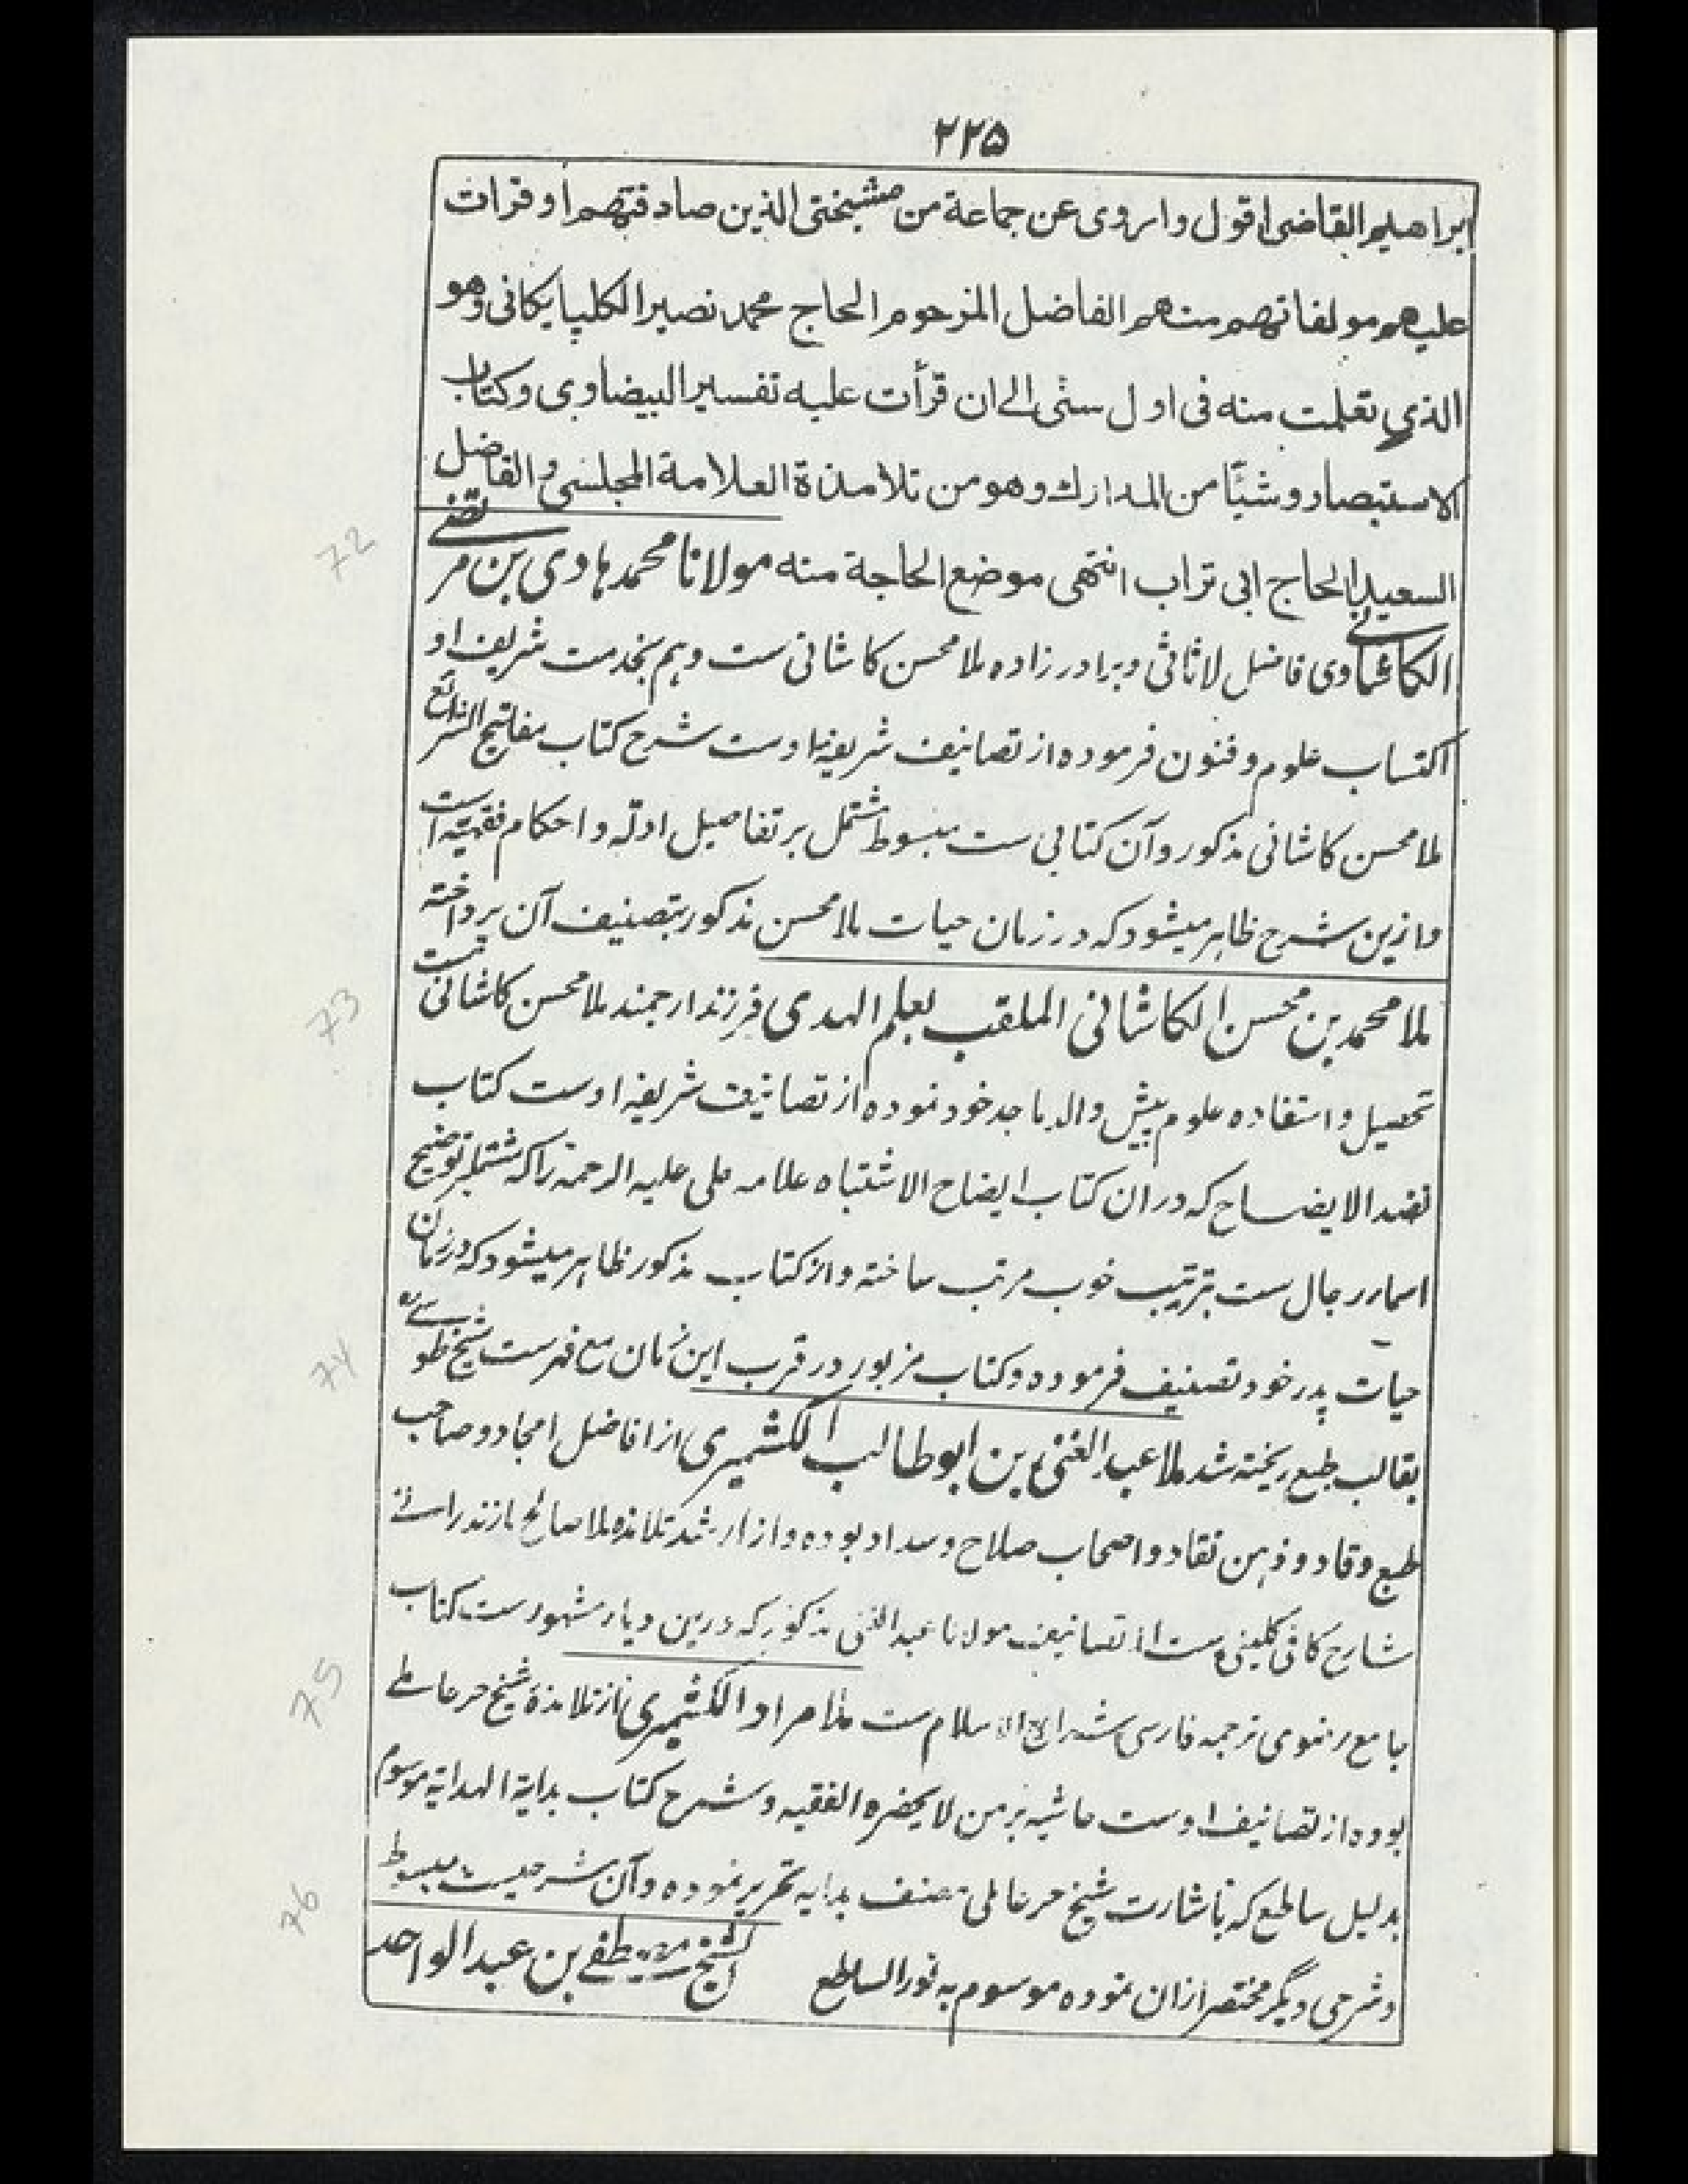 ۲۲۵
ابراهیم القاضی اقول واروی عن جماعة من مشیختی الذین صادفتهم او قرات
علیهم مولفاتهم منهم الفاضل المرحوم الحاج محمد نصیر الکلپایکانی وهو
الذی تعلمت منه فی اول سنی الی ان قرأت علیه تفسیر البیضاوی وکتاب
الاستبصار وشیئا من المدارك وهو من تلامذة العلامة المجلسی والفاضل
السعید الحاج ابی تراب انتهی موضع الحاجة منه مولانا محمد هادی بن مرتضے
الکاشانی وی فاضل لاثانی وبرادر زاده ملا محسن کاشانی ست وهم بخدمت شریف او
اکتساب علوم وفنون فرموده از تصانیف شریفه اوست شرح کتاب مفاتیح الشرائع
ملا محسن کاشانی مذکور وآن کتابی ست مبسوط مشتمل بر تفاصیل ادلّه واحکام فقهیّه است
وازین شرح ظاهر میشود که در زمان حیات ملا محسن مذکور بتصنیف آن پرداخته
ملا محمد بن محسن الکاشانی الملقب بعلم الهدی فرزند ارجمند ملا محسن کاشانی ست
تحصیل واستفاده علوم پیش والد ماجد خود نموده از تصانیف شریفه اوست کتاب
نضد الایضاح که دران کتاب ایضاح الاشتباه علامه حلی علیه الرحمة را که مشتمل بر توضیح
اسماء رجال ست بترتیب خوب مرتب ساخته واز کتاب مذکور ظاهر میشود که در زمان
حیات پدر خود تصنیف فرموده وکتاب مزبور در قرب این زمان مع فهرست شیخ طوسے
بقالب طبع ریخته شد ملا عبد الغنی بن ابو طالب الکشمیری از افاضل امجاد وصاحب
طبع وقاد وذهن نقاد واصحاب صلاح وسداد بوده واز ارشد تلامذه ملا صالح مازندرانے
شارح کافی کلینی ست از تصانیف مولانا عبد الغنی مذکور که درین دیار مشهورست کتاب
جامع رضوی ترجمه فارسی شرایع الاسلام ست ملا مراد الکشمیری از تلامذۀ شیخ حر عاملے
بوده از تصانیف اوست حاشیه بر من لا یحضره الفقیه وشرح کتاب بدایة الهدایة موسوم
بدلیل ساطع که باشارت شیخ حر عاملی مصنف بدایه تحریر نموده وآن شرحیست مبسوط
وشرحی دیگر مختصر ازان نموده موسوم به نور الساطع الشیخ مصطفے بن عبد الواحد
72
73
74
75
76